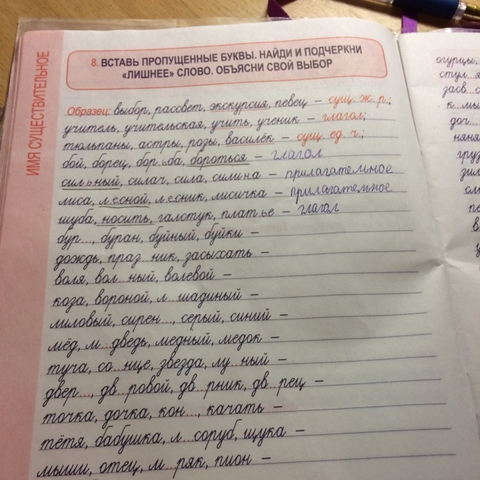 8. ВСТАВЬ ПРОПУЩЕННЫЕ БУКВЫ. НАЙДИ И ПОДЧЕРКНИ
«ЛИШНЕЕ» СЛОВО. ОБЪЯСНИ СВОЙ ВЫБОР
ИМЯ СУЩЕСТВИТЕЛЬНОЕ
Образец: выбор, рассвет, экскурсия, певец – сущ. ж. р.;
учитель, учительская, учить, ученик – глагол;
тюльпаны, астры, розы, василёк – сущ. ед. ч.;
бой, борец, борьба, бороться – глагол
сильный, силач, сила, силина – прилагательное
лиса, лесной, лесник, лисичка – прилагательное
шуба, носить, галстук, платье – глагол
бур..., буран, буйный, буйки –
дождь, праз...ник, засыхать –
воля, вол...ный, волевой –
коза, вороной, л...шадиный –
лиловый, сирен..., серый, синий –
мёд, м...дведь, медный, медок –
туча, со...нце, звезда, лу...ный –
двер..., дв...ровой, дв...рник, дв...рец –
точка, дочка, кон..., качать –
тётя, бабушка, л...соруб, щука –
мыши, отец, м...ряк, пион –
огурцы,
стул...я
засо
к...мы
доч
няня
груз
зи